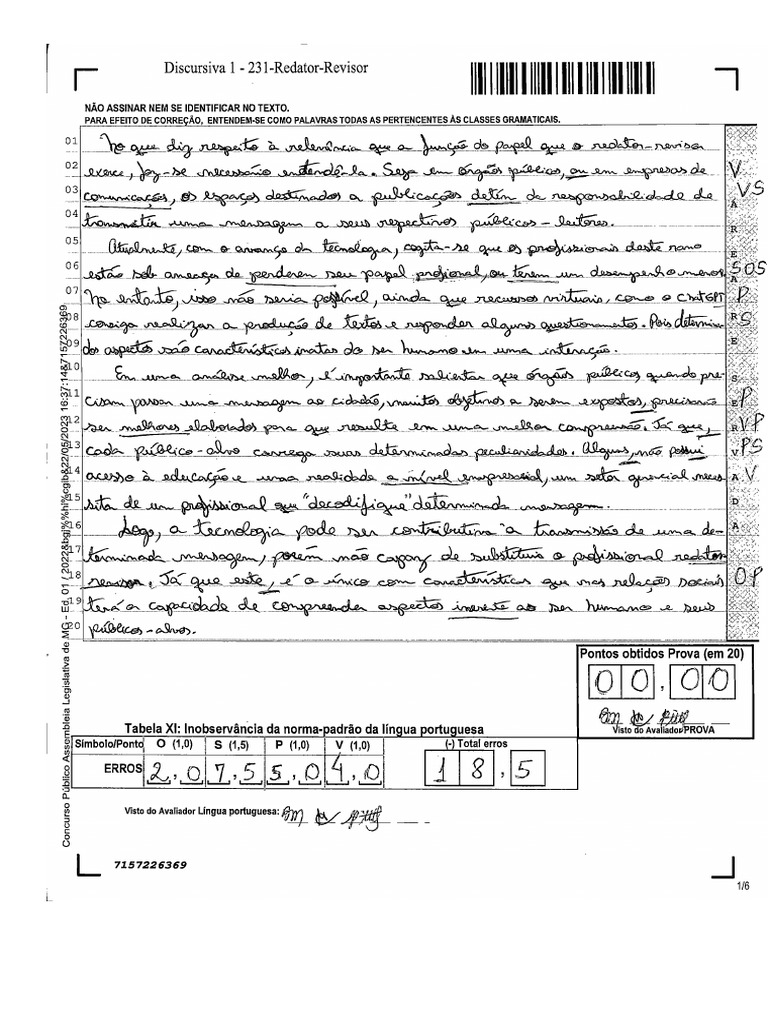 Discursiva 1 - 231-Redator-Revisor
NÃO ASSINAR NEM SE IDENTIFICAR NO TEXTO.
PARA EFEITO DE CORREÇÃO, ENTENDEM-SE COMO PALAVRAS TODAS AS PERTENCENTES ÀS CLASSES GRAMATICAIS.
01 No que diz respeito à relevância que a função do papel que o redator-revisor
02 exerce, faz-se necessário entendê-la. Seja em órgãos públicos, ou em empresas de V
03 comunicações, os espaços destinados a publicações detêm da responsabilidade de VS
04 transmitir uma mensagem a seus respectivos públicos-leitores.
05 Atualmente, com o avanço da tecnologia, cogita-se que os profissionais deste ramo
06 estão sob ameaça de perderem seu papel profional, ou terem um desempenho menor SOS
07 No entanto, isso não seria possível, ainda que recursos virtuais, como o ChatGPT P
08 consiga realizar a produção de textos e responder alguns questionamentos. Pois determina S
09 dos aspectos são características inatas do ser humano em uma interação.
10 Em uma análise melhor, é importante salientar que órgãos públicos quando pre-
11 cisam passar uma mensagem ao cidadão, muitos objetivos a serem expostos, precisarão P
12 ser melhores elaborados para que resulte em uma melhor compreensão. Já que, VP
13 cada público-alvo carrega suas determinadas peculiaridades. Alguns, não possui PS
14 acesso à educação e uma realidade a nível empresarial, um setor gerencial neces V
15 sita de um profissional que "decodifique" determinada mensagem.
16 Logo, a tecnologia pode ser contributiva a transmissão de uma de-
17 terminada mensagem, porém não capaz de substituir o profissional redator
18 revisor. Já que este, é o único com características que nas relações sociais OP
19 terá a capacidade de compreender aspectos inerente ao ser humano e seus
20 públicos-alvos.
ÁREA RESERVADA
Concurso Público Assembleia Legislativa de MG - Ed. 01 / (2022&bgj%%hl%<gib&22/05/2023 16:37:14&7157226369
Pontos obtidos Prova (em 20)
00,00
Visto do Avaliador PROVA
Tabela XI: Inobservância da norma-padrão da língua portuguesa
Símbolo/Ponto O (1,0) S (1,5) P (1,0) V (1,0) (-) Total erros
ERROS 2,0 7,5 5,0 4,0 18,5
Visto do Avaliador Língua portuguesa:
7157226369
1/6